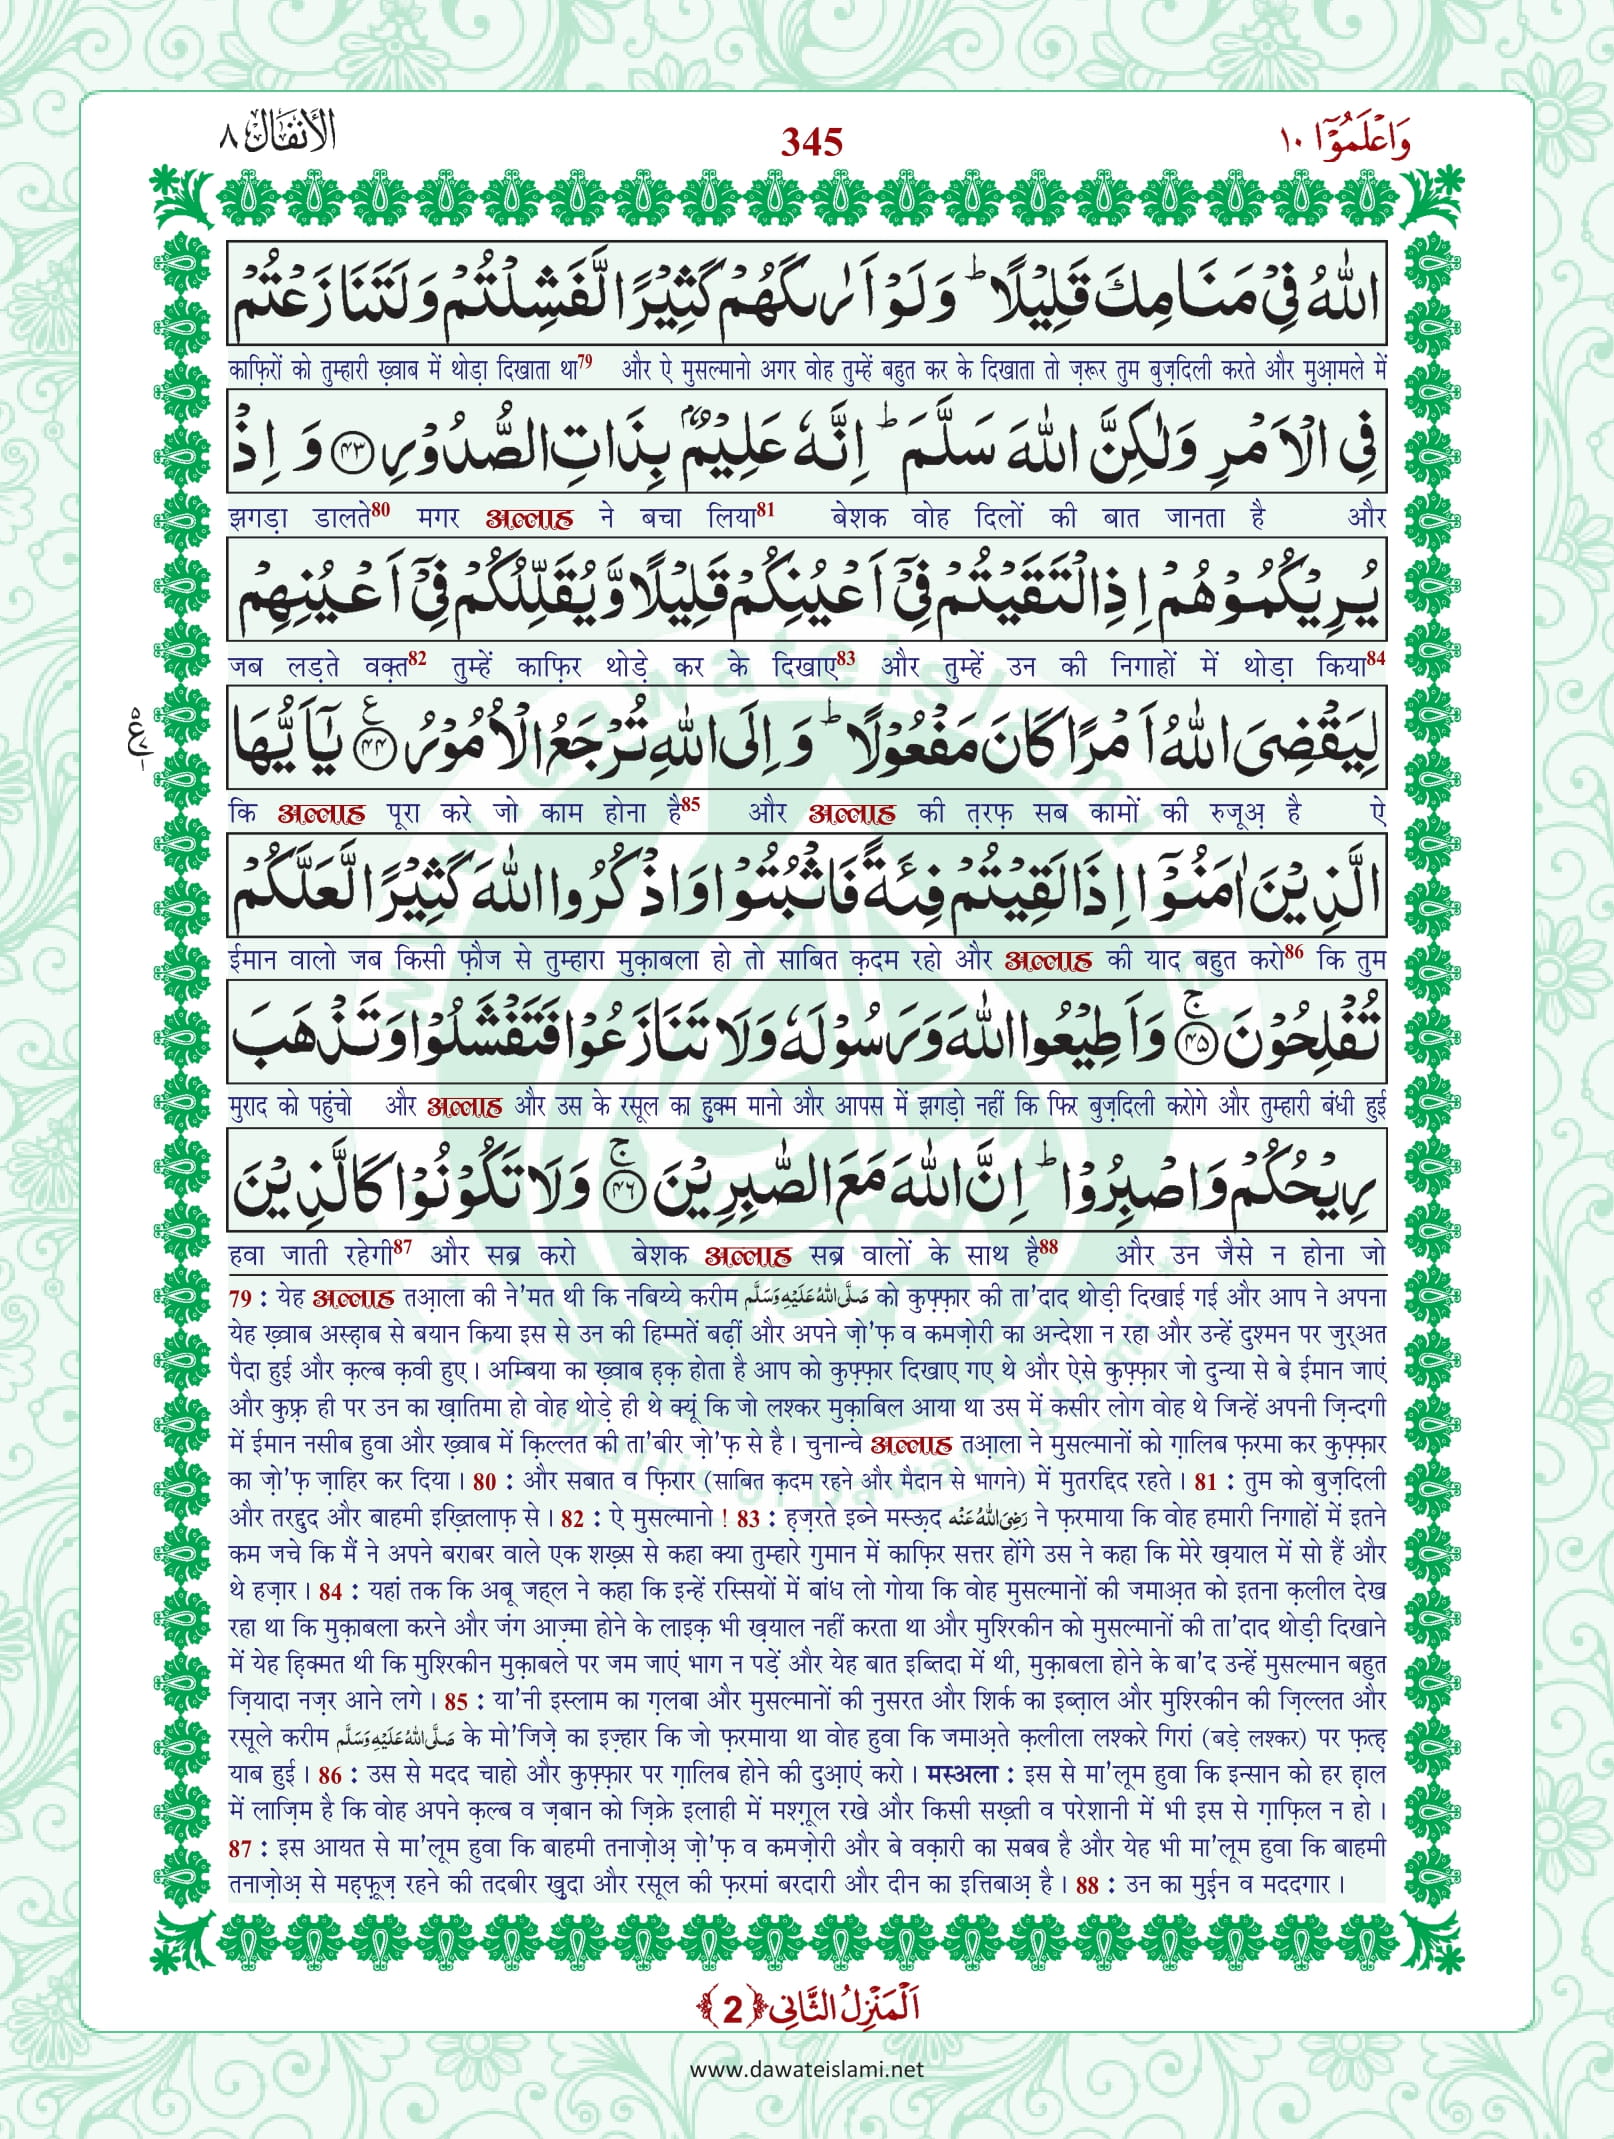 وَاعْلَمُوْۤا ١٠
345
الْاَنْفَال ٨
اللّٰهُ فِیْ مَنَامِكَ قَلِیْلًاؕ وَ لَوْ اَرٰىكَهُمْ كَثِیْرًا لَّفَشِلْتُمْ وَ لَتَنَازَعْتُمْ
काफ़िरों को तुम्हारी ख़्वाब में थोड़ा दिखाता था79 और ऐ मुसल्मानो अगर वोह तुम्हें बहुत कर के दिखाता तो ज़रूर तुम बुज़दिली करते और मुआ़मले में
فِی الْاَمْرِ وَ لٰكِنَّ اللّٰهَ سَلَّمَؕ اِنَّهٗ عَلِیْمٌۢ بِذَاتِ الصُّدُوْرِ ﴿۴۳﴾ وَ اِذْ
झगड़ा डालते80 मगर अल्लाह ने बचा लिया81 बेशक वोह दिलों की बात जानता है और
یُرِیْكُمُوْهُمْ اِذِ الْتَقَیْتُمْ فِیْۤ اَعْیُنِكُمْ قَلِیْلًا وَّ یُقَلِّلُكُمْ فِیْۤ اَعْیُنِهِمْ
जब लड़ते वक़्त82 तुम्हें काफ़िर थोड़े कर के दिखाए83 और तुम्हें उन की निगाहों में थोड़ा किया84
لِیَقْضِیَ اللّٰهُ اَمْرًا كَانَ مَفْعُوْلًاؕ وَ اِلَى اللّٰهِ تُرْجَعُ الْاُمُوْرُ ﴿۴۴﴾ یٰۤاَیُّهَا
कि अल्लाह पूरा करे जो काम होना है85 और अल्लाह की त़रफ़ सब कामों की रुजूअ़ है ऐ
الَّذِیْنَ اٰمَنُوْۤا اِذَا لَقِیْتُمْ فِئَةً فَاثْبُتُوْا وَ اذْكُرُوا اللّٰهَ كَثِیْرًا لَّعَلَّكُمْ
ईमान वालो जब किसी फ़ौज से तुम्हारा मुक़ाबला हो तो साबित क़दम रहो और अल्लाह की याद बहुत करो86 कि तुम
تُفْلِحُوْنَ ﴿۴۵﴾ۚ وَ اَطِیْعُوا اللّٰهَ وَ رَسُوْلَهٗ وَ لَا تَنَازَعُوْا فَتَفْشَلُوْا وَ تَذْهَبَ
मुराद को पहुंचो और अल्लाह और उस के रसूल का हुक्म मानो और आपस में झगड़ो नहीं कि फिर बुज़दिली करोगे और तुम्हारी बंधी हुई
رِیْحُكُمْ وَ اصْبِرُوْاؕ اِنَّ اللّٰهَ مَعَ الصّٰبِرِیْنَ ﴿۴۶﴾ۚ وَ لَا تَكُوْنُوْا كَالَّذِیْنَ
हवा जाती रहेगी87 और सब्र करो बेशक अल्लाह सब्र वालों के साथ है88 और उन जैसे न होना जो
79 : येह अल्लाह तआ़ला की ने'मत थी कि नबिय्ये करीम صَلَّى اللّٰهُ عَلَيْهِ وَسَلَّم को कुफ़्फ़ार की ता'दाद थोड़ी दिखाई गई और आप ने अपना
येह ख़्वाब अस्ह़ाब से बयान किया इस से उन की हिम्मतें बढ़ीं और अपने ज़ो'फ़ व कमज़ोरी का अन्देशा न रहा और उन्हें दुश्मन पर जुर्अत
पैदा हुई और क़ल्ब क़वी हुए। अम्बिया का ख़्वाब ह़क़ होता है आप को कुफ़्फ़ार दिखाए गए थे और ऐसे कुफ़्फ़ार जो दुन्या से बे ईमान जाएं
और कुफ़्र ही पर उन का ख़ातिमा हो वोह थोड़े ही थे क्यूं कि जो लश्कर मुक़ाबिल आया था उस में कसीर लोग वोह थे जिन्हें अपनी ज़िन्दगी
में ईमान नसीब हुवा और ख़्वाब में क़िल्लत की ता'बीर ज़ो'फ़ से है। चुनान्चे अल्लाह तआ़ला ने मुसल्मानों को ग़ालिब फ़रमा कर कुफ़्फ़ार
का ज़ो'फ़ ज़ाहिर कर दिया। 80 : और सबात व फ़िरार (साबित क़दम रहने और मैदान से भागने) में मुतरद्दिद रहते। 81 : तुम को बुज़दिली
और तरद्दुद और बाहमी इख़्तिलाफ़ से। 82 : ऐ मुसल्मानो ! 83 : ह़ज़रते इब्ने मस्ऊ़द رَضِیَ اللّٰهُ عَنْه ने फ़रमाया कि वोह हमारी निगाहों में इतने
कम जचे कि मैं ने अपने बराबर वाले एक शख़्स से कहा क्या तुम्हारे गुमान में काफ़िर सत्तर होंगे उस ने कहा कि मेरे ख़याल में सो हैं और
थे हज़ार। 84 : यहां तक कि अबू जह्ल ने कहा कि इन्हें रस्सियों में बांध लो गोया कि वोह मुसल्मानों की जमाअ़त को इतना क़लील देख
रहा था कि मुक़ाबला करने और जंग आज़्मा होने के लाइक़ भी ख़याल नहीं करता था और मुश्रिकीन को मुसल्मानों की ता'दाद थोड़ी दिखाने
में येह ह़िक्मत थी कि मुश्रिकीन मुक़ाबले पर जम जाएं भाग न पड़ें और येह बात इब्तिदा में थी, मुक़ाबला होने के बा'द उन्हें मुसल्मान बहुत
ज़ियादा नज़र आने लगे। 85 : या'नी इस्लाम का ग़लबा और मुसल्मानों की नुसरत और शिर्क का इब्त़ाल और मुश्रिकीन की ज़िल्लत और
रसूले करीम صَلَّى اللّٰهُ عَلَيْهِ وَسَلَّم के मो'जिज़े का इज़्हार कि जो फ़रमाया था वोह हुवा कि जमाअ़ते क़लीला लश्करे गिरां (बड़े लश्कर) पर फ़त्ह़
याब हुई। 86 : उस से मदद चाहो और कुफ़्फ़ार पर ग़ालिब होने की दुआ़एं करो। मस्अला : इस से मा'लूम हुवा कि इन्सान को हर ह़ाल
में लाज़िम है कि वोह अपने क़ल्ब व ज़बान को ज़िक्रे इलाही में मश्ग़ूल रखे और किसी सख़्ती व परेशानी में भी इस से ग़ाफ़िल न हो।
87 : इस आयत से मा'लूम हुवा कि बाहमी तनाज़ोअ़ ज़ो'फ़ व कमज़ोरी और बे वक़ारी का सबब है और येह भी मा'लूम हुवा कि बाहमी
तनाज़ोअ़ से मह़फ़ूज़ रहने की तदबीर ख़ुदा और रसूल की फ़रमां बरदारी और दीन का इत्तिबाअ़ है। 88 : उन का मुई़न व मददगार।
اَلْمَنْزِلُ الثَّانِی ﴿2﴾
www.dawateislami.net